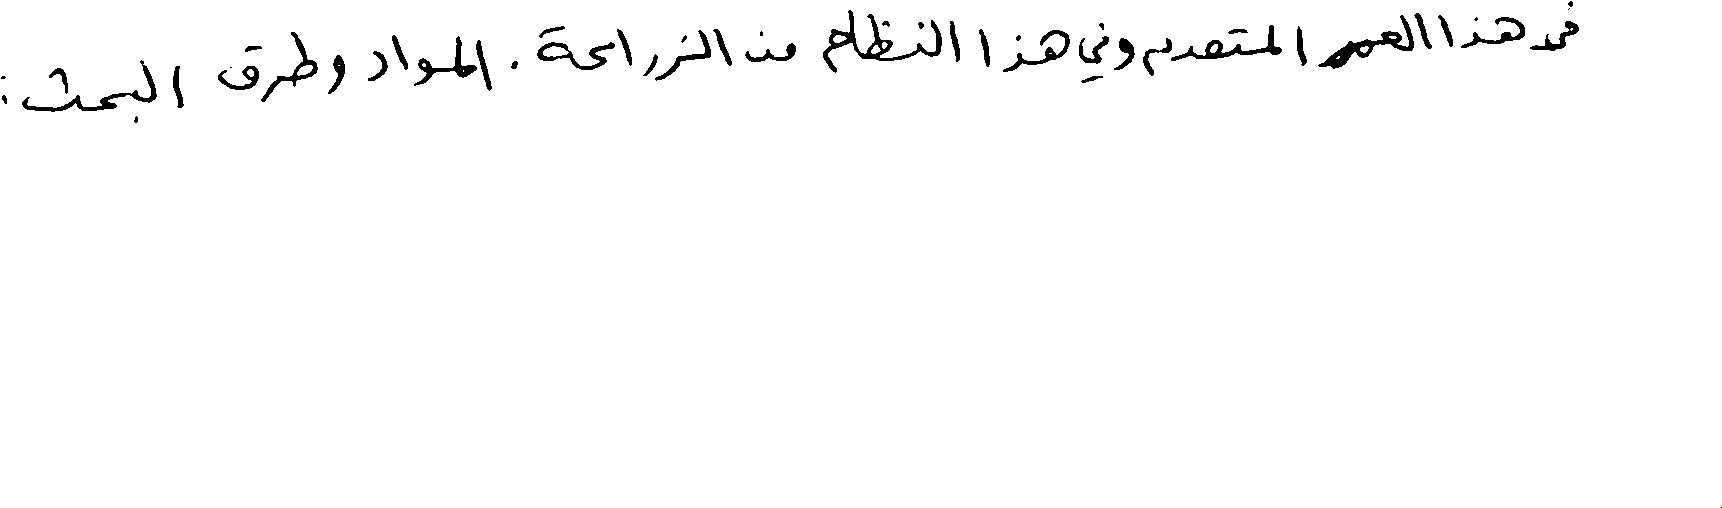 في هذا العمر المتقدم وفي هذا النظام من الزراعة . المواد وطرق البحث :